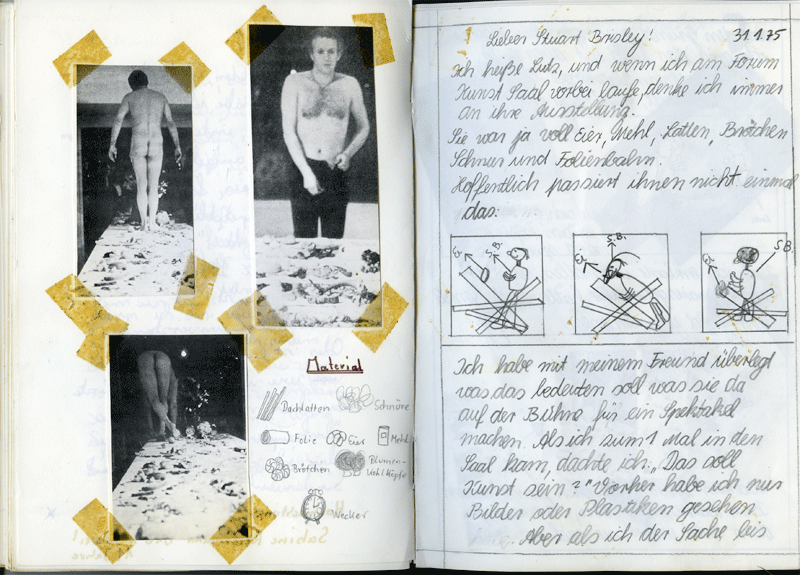 Material
Dachlatten
Schnüre
Folie
Eier
Mehl
Brötchen
Blumen-
kohlköpfe
Wecker
Lieber Stuart Brisley! 31.1.75
Ich heiße Lutz, und wenn ich am Forum
Kunst Saal vorbei laufe, denke ich immer
an ihre Ausstellung.
Sie war ja voll Eier, Mehl, Latten, Brötchen
Schnur und Folienbahn.
Hoffentlich passiert ihnen nicht einmal
das:
Ei S.B.
Ei S.B.
Ei S.B.
Ich habe mit meinem Freund überlegt
was das bedeuten soll was sie da
auf der Bühne für ein Spektakel
machen. Als ich zum 1 Mal in den
Saal kam, dachte ich: „Das soll
Kunst sein?" Vorher habe ich nur
Bilder oder Plastiken gesehen
Aber als ich der Sache bis